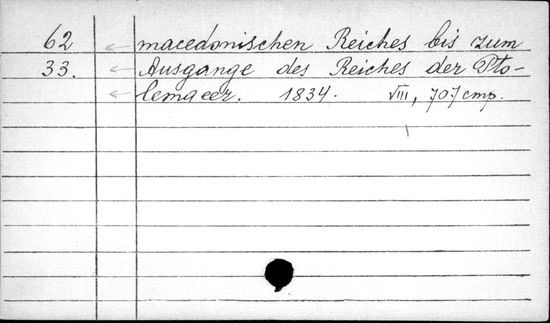 62 macedonischen Reiches bis zum
33. Ausgange des Reiches der Pto-
lemaeer. 1834. VIII, 707 cmp.